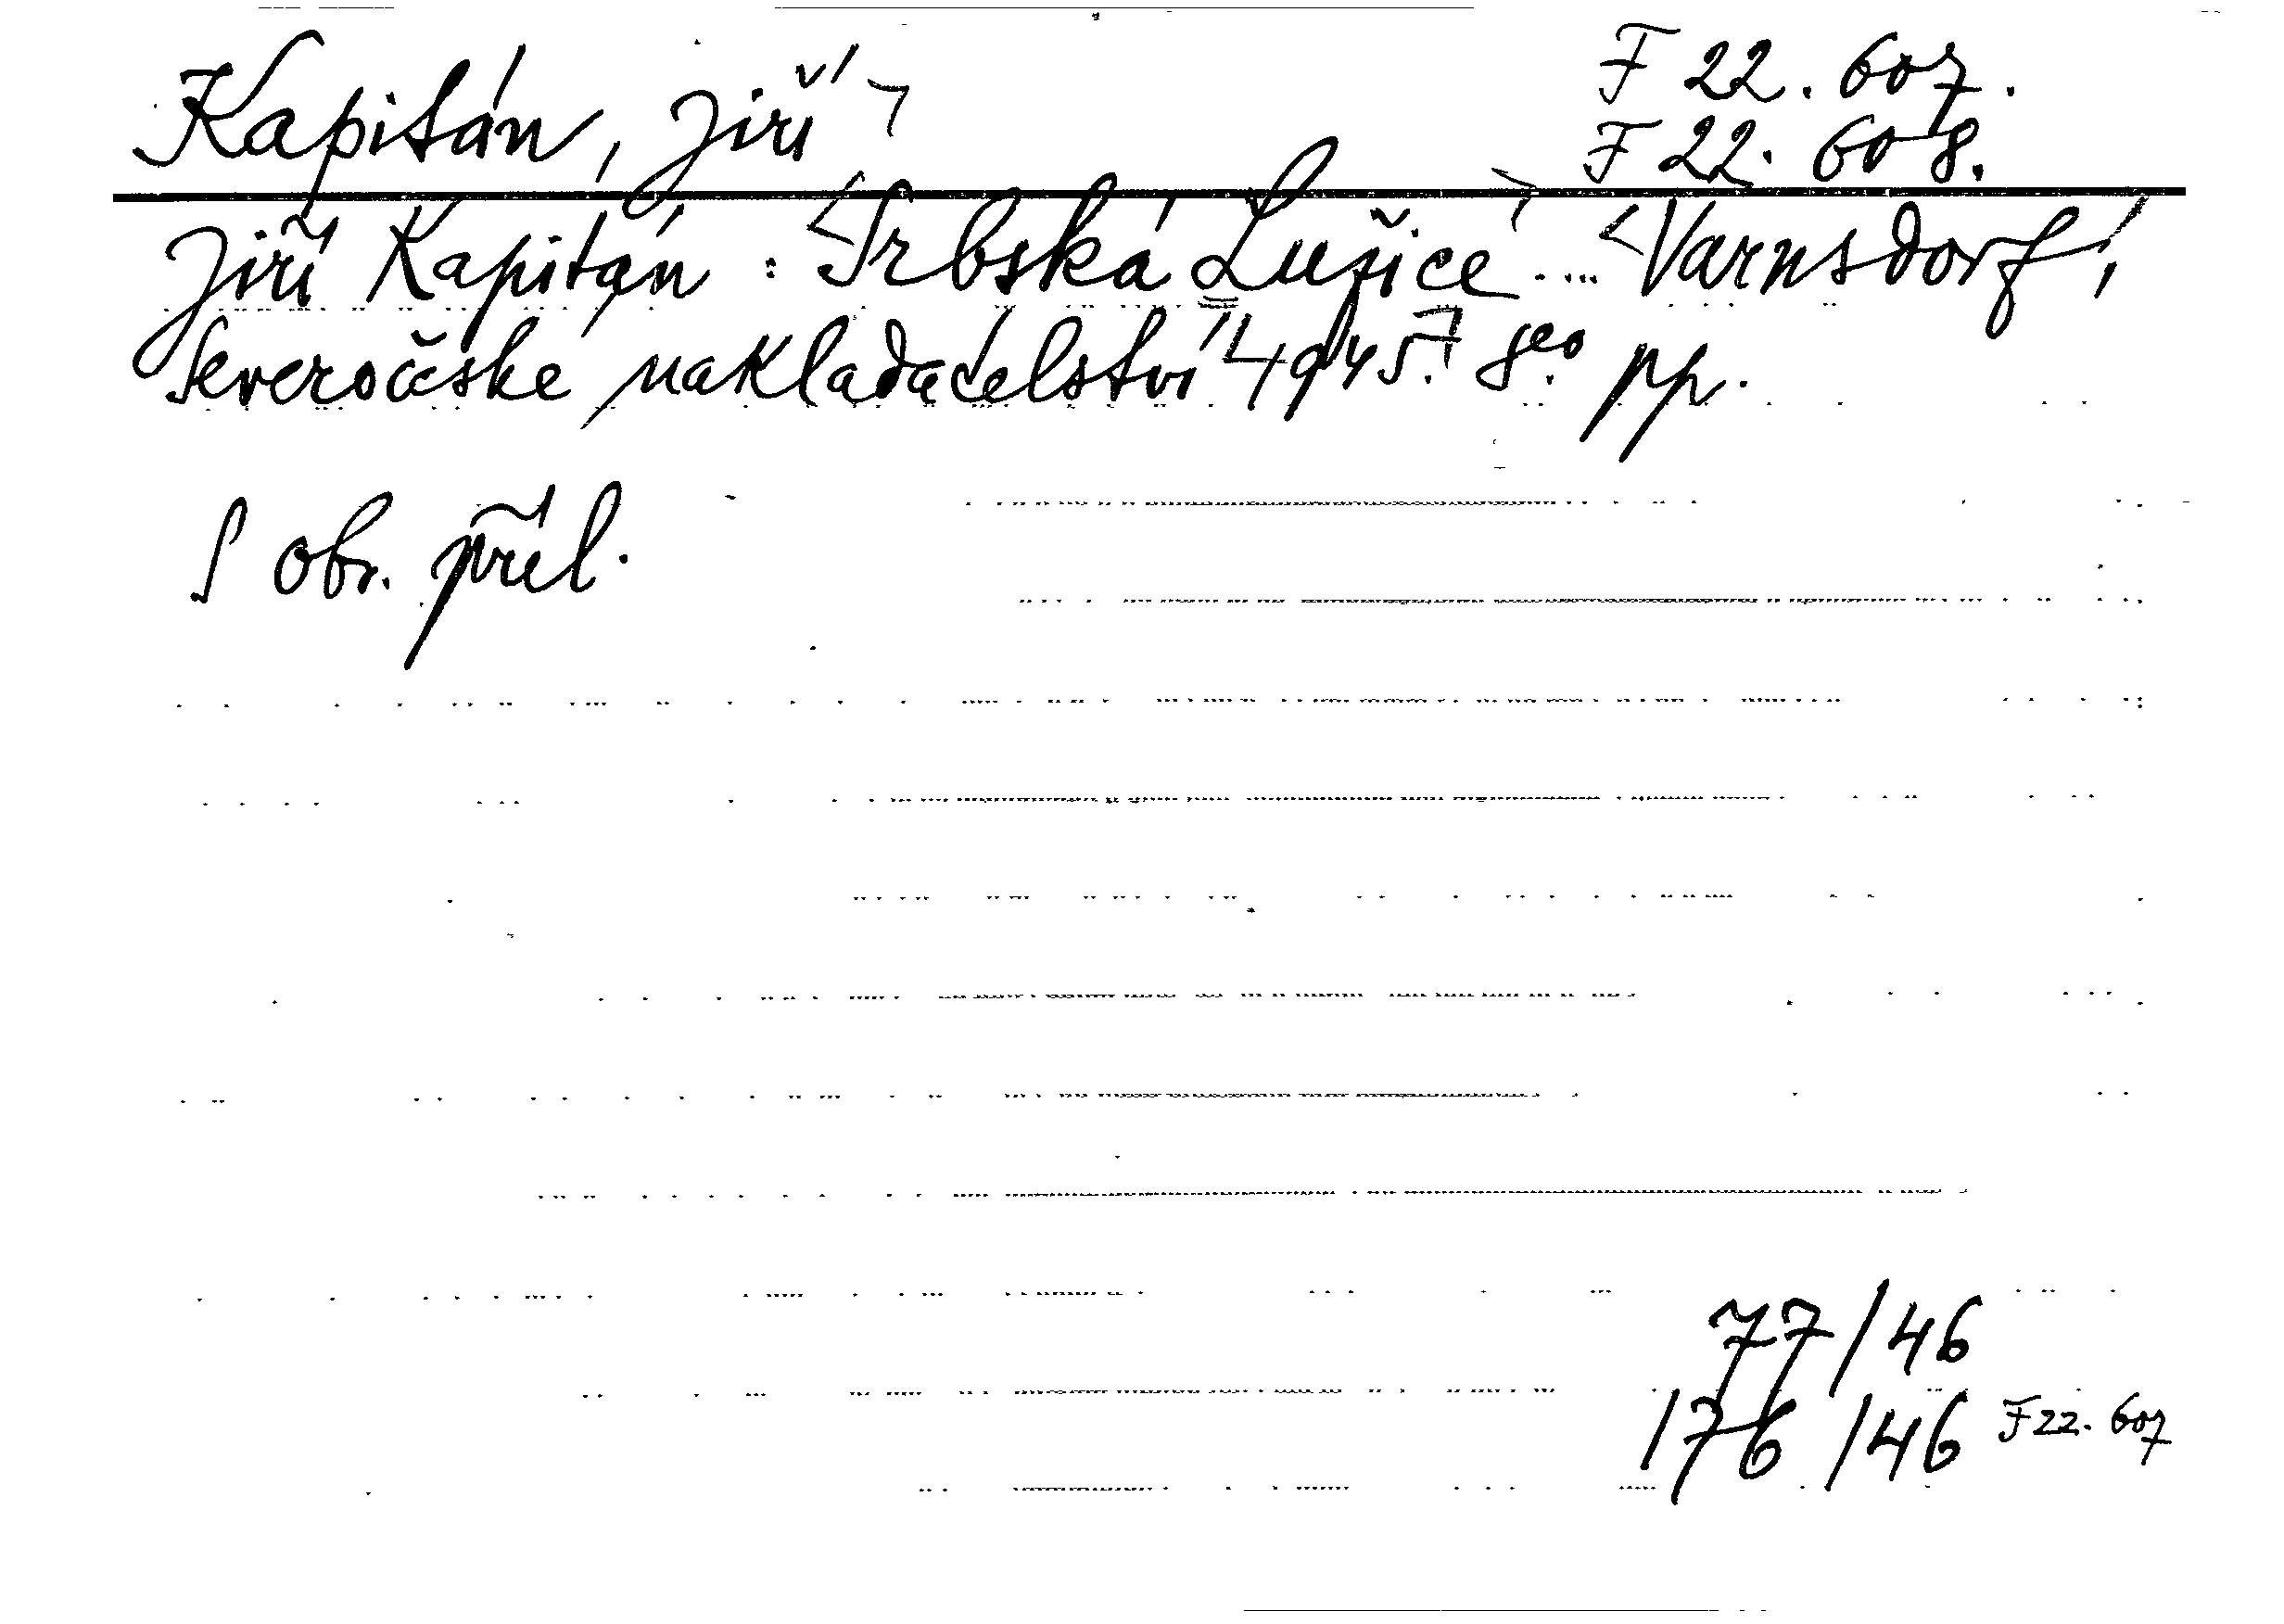 Kapitán, Jiří
F 22.607.
F 22.608.
Jiří Kapitán: Srbská Lužice.... Varnsdorf,
Severočeské nakladatelství 1945. 8eo pp.
S obr. příl.
77/46
176/46 F 22.607